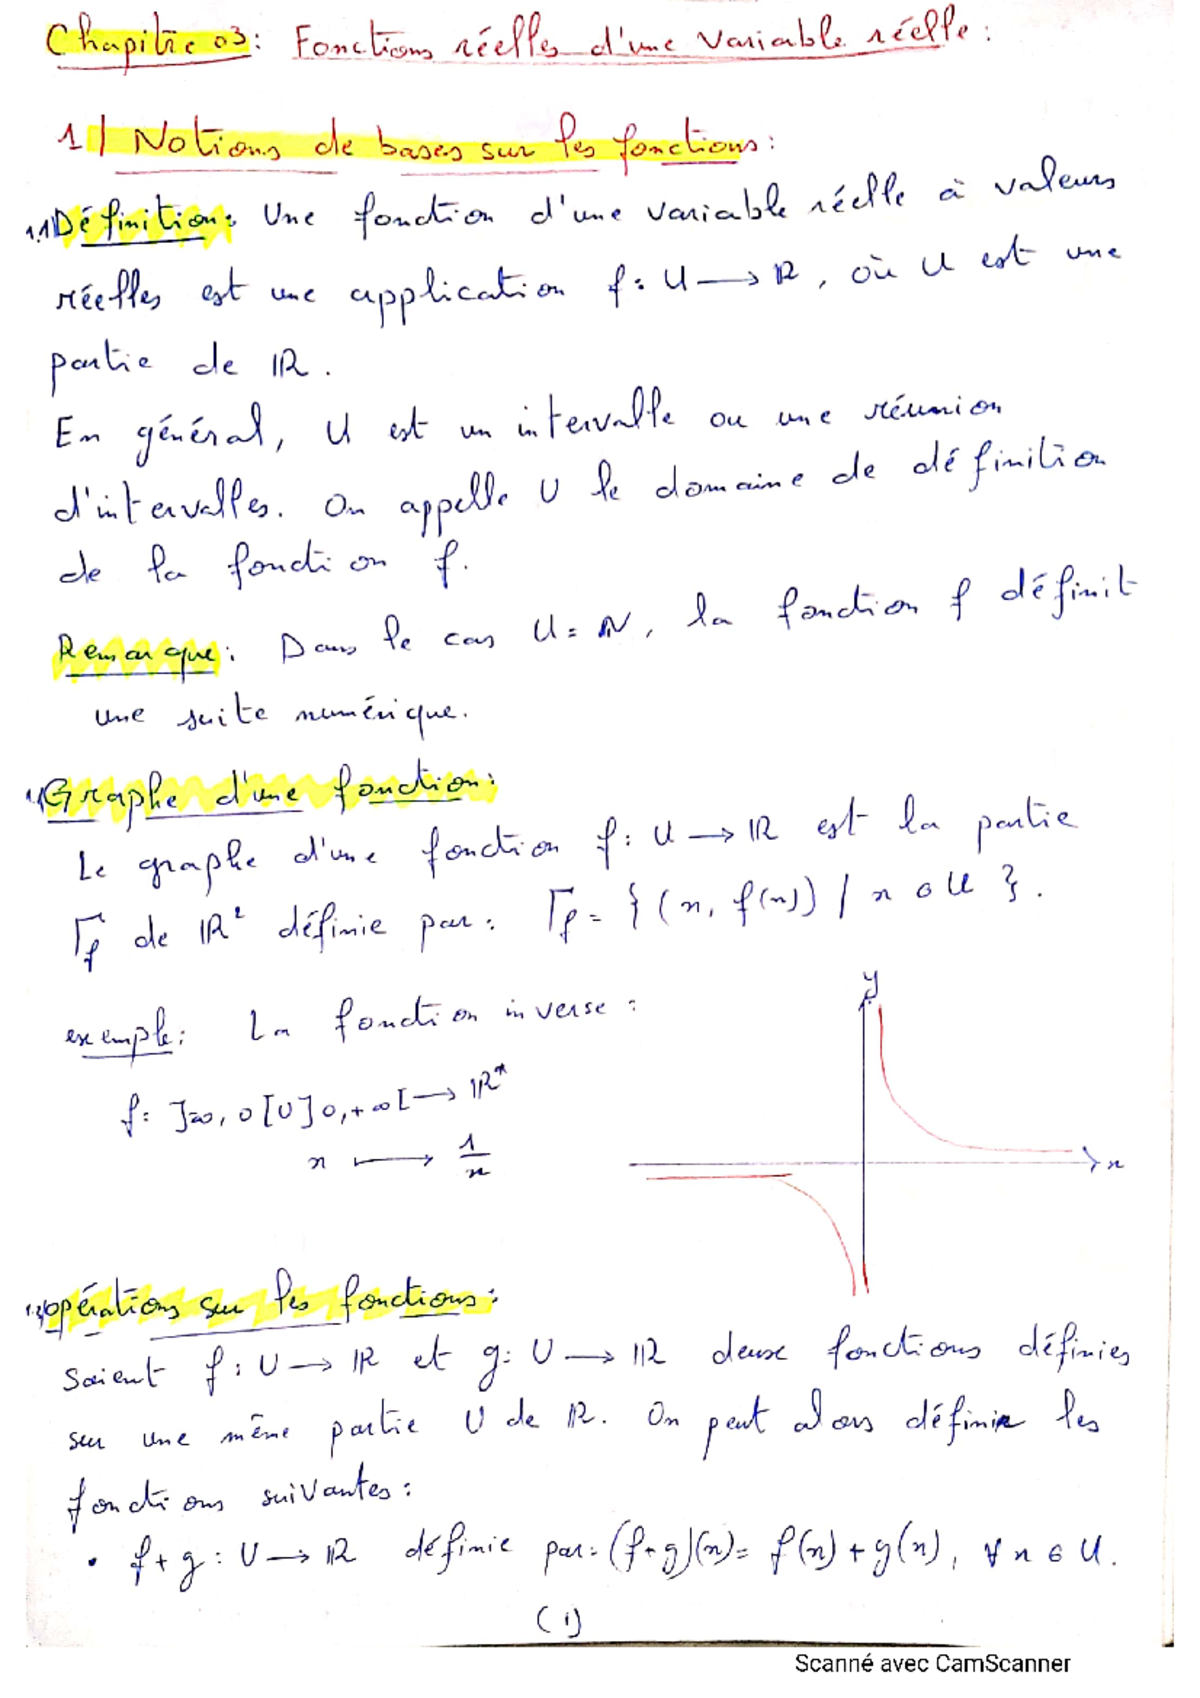 Chapitre 03: Fonctions réelles d'une variable réelle:
1/ Notions de bases sur les fonctions:
1.1 Définition: Une fonction d'une variable réelle à valeurs
réelles est une application f: U → ℝ, où U est une
partie de ℝ.
En général, U est un intervalle ou une réunion
d'intervalles. On appelle U le domaine de définition
de la fonction f.
Remarque: Dans le cas U = ℕ, la fonction f définit
une suite numérique.
Graphe d'une fonction:
Le graphe d'une fonction f: U → ℝ est la partie
Γf de ℝ² définie par: Γf = { (x, f(x)) / x ∈ U }.
y
exemple: La fonction inverse:
f: ]-∞, 0[ ∪ ]0, +∞[ → ℝ*
x ⟼ 1/x
x
1.3 opérations sur les fonctions:
Soient f: U → ℝ et g: U → ℝ deux fonctions définies
sur une même partie U de ℝ. On peut alors définir les
fonctions suivantes:
• f+g: U → ℝ définie par: (f+g)(x) = f(x) + g(x), ∀ x ∈ U.
(1)
Scanné avec CamScanner